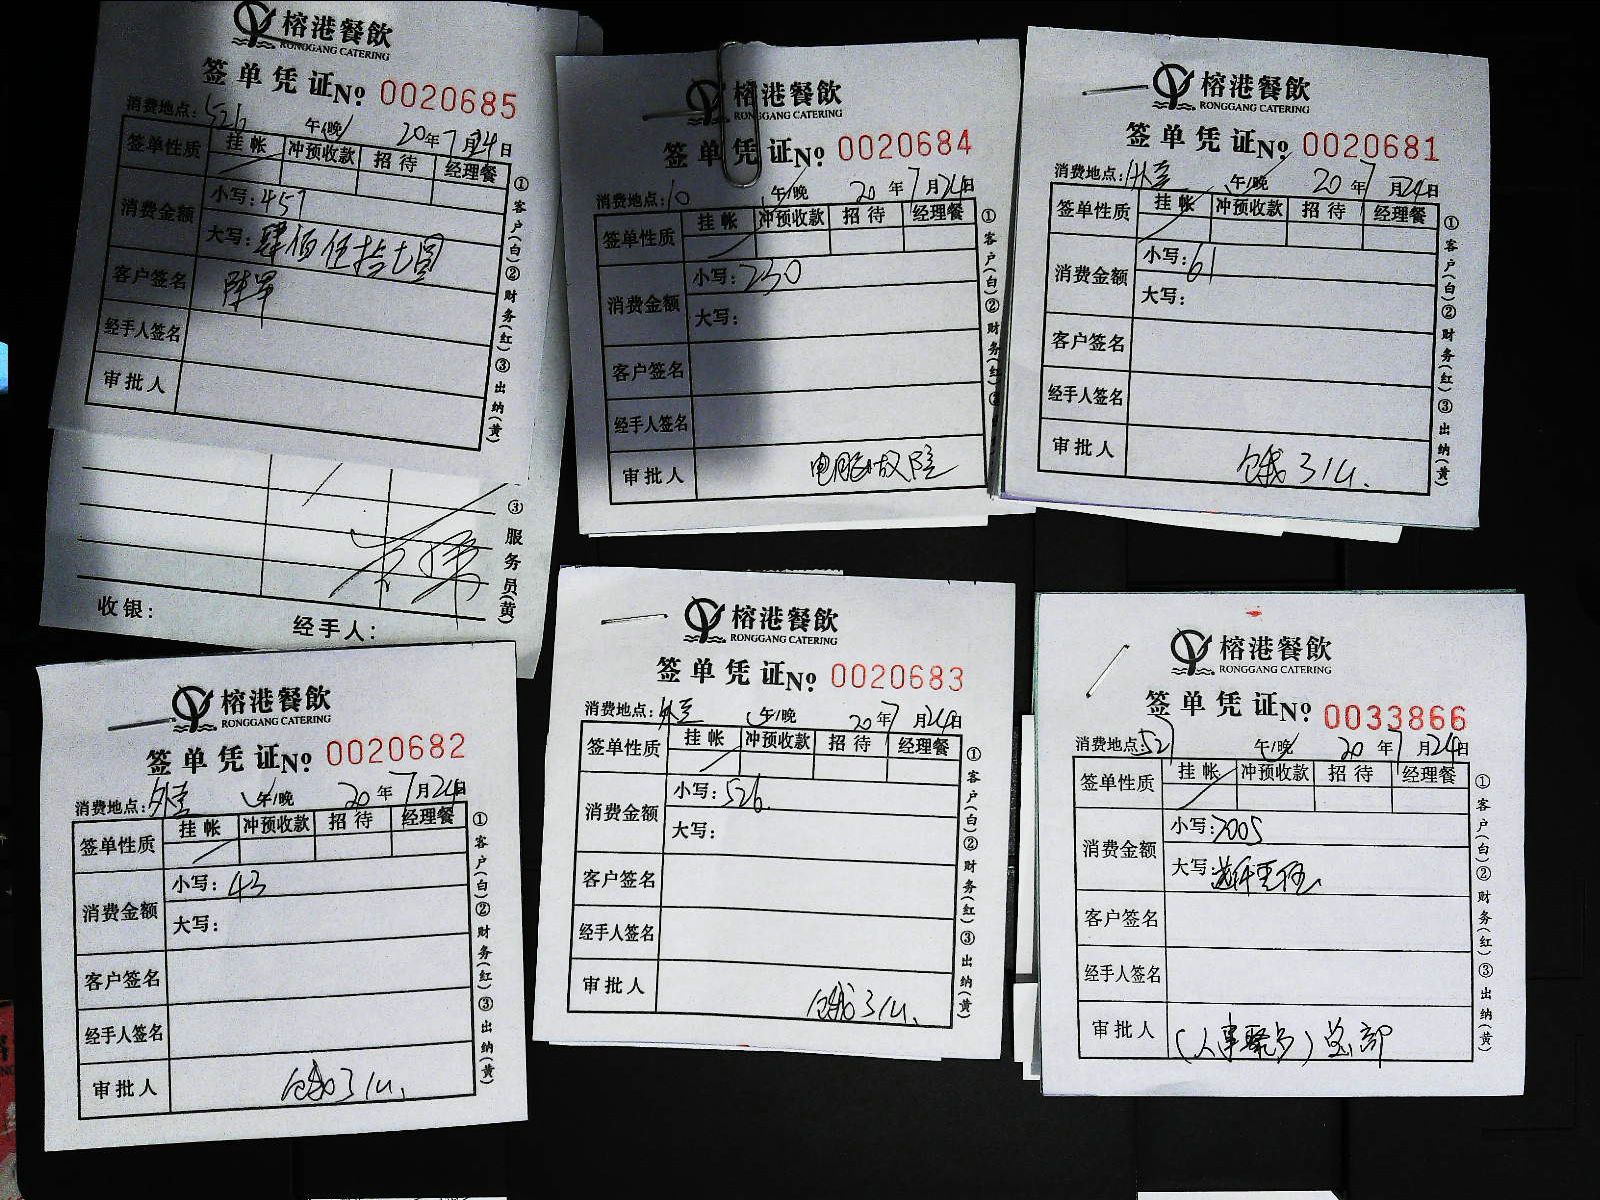 榕港餐飲
RONGGANG CATERING
签单凭证No 0020685
消费地点:526 午/晚 20年7月24日
签单性质 挂帐 冲预收款 招待 经理餐
消费金额 小写:457
大写:肆佰伍拾七圆
客户签名
经手人签名
审批人
①客户(白)②财务(红)③出纳(黄)
③服务员(黄)
收银: 经手人:
榕港餐飲
RONGGANG CATERING
签单凭证No 0020684
消费地点:10 午/晚 20年7月24日
签单性质 挂帐 冲预收款 招待 经理餐
消费金额 小写:230
大写:
客户签名
经手人签名
审批人 电脑故障
①客户(白)②财务(红)③
榕港餐飲
RONGGANG CATERING
签单凭证No 0020681
消费地点:外卖 午/晚 20年7月24日
签单性质 挂帐 冲预收款 招待 经理餐
消费金额 小写:61
大写:
客户签名
经手人签名
审批人 饿了么.
①客户(白)②财务(红)③出纳(黄)
榕港餐飲
RONGGANG CATERING
签单凭证No 0020682
消费地点:外卖 午/晚 20年7月24日
签单性质 挂帐 冲预收款 招待 经理餐
消费金额 小写:43
大写:
客户签名
经手人签名
审批人 饿了么.
①客户(白)②财务(红)③出纳(黄)
榕港餐飲
RONGGANG CATERING
签单凭证No 0020683
消费地点:外卖 午/晚 20年7月24日
签单性质 挂帐 冲预收款 招待 经理餐
消费金额 小写:526.
大写:
客户签名
经手人签名
审批人 饿了么.
①客户(白)②财务(红)③出纳(黄)
榕港餐飲
RONGGANG CATERING
签单凭证No 0033866
消费地点:527 午/晚 20年7月24日
签单性质 挂帐 冲预收款 招待 经理餐
消费金额 小写:7005
大写:
客户签名
经手人签名
审批人 (人事聚多)总部
①客户(白)②财务(红)③出纳(黄)